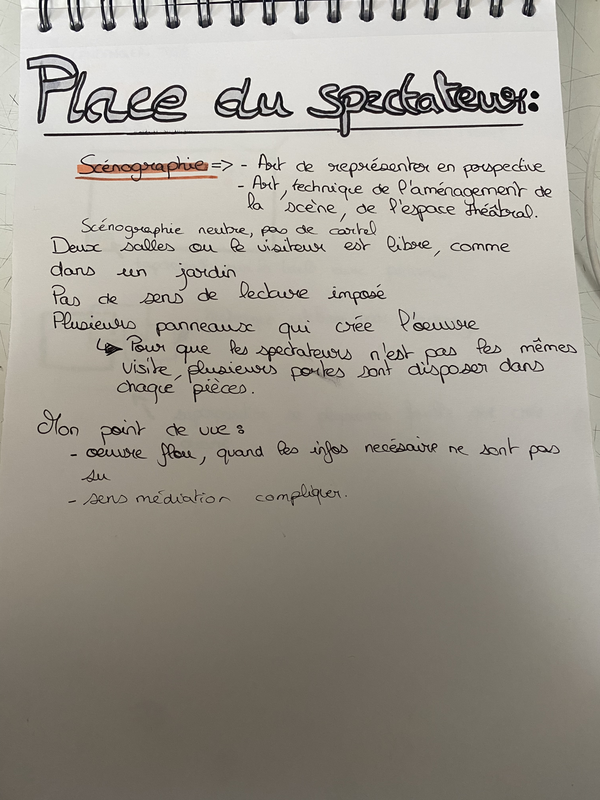 Place du spectateur:
Scénographie => - Art de représenter en perspective
- Art, technique de l'aménagement de
la scène, de l'espace théâtral.
Scénographie neutre, pas de cartel
Deux salles ou le visiteur est libre, comme
dans un jardin
Pas de sens de lecture imposé
Plusieurs panneaux qui crée l'oeuvre
↳ Pour que les spectateurs n'est pas les mêmes
visite, plusieurs portes sont disposer dans
chaque pièces.
Mon point de vue :
- oeuvre flou, quand les infos necésaire ne sont pas
su
- sens médiation compliquer.